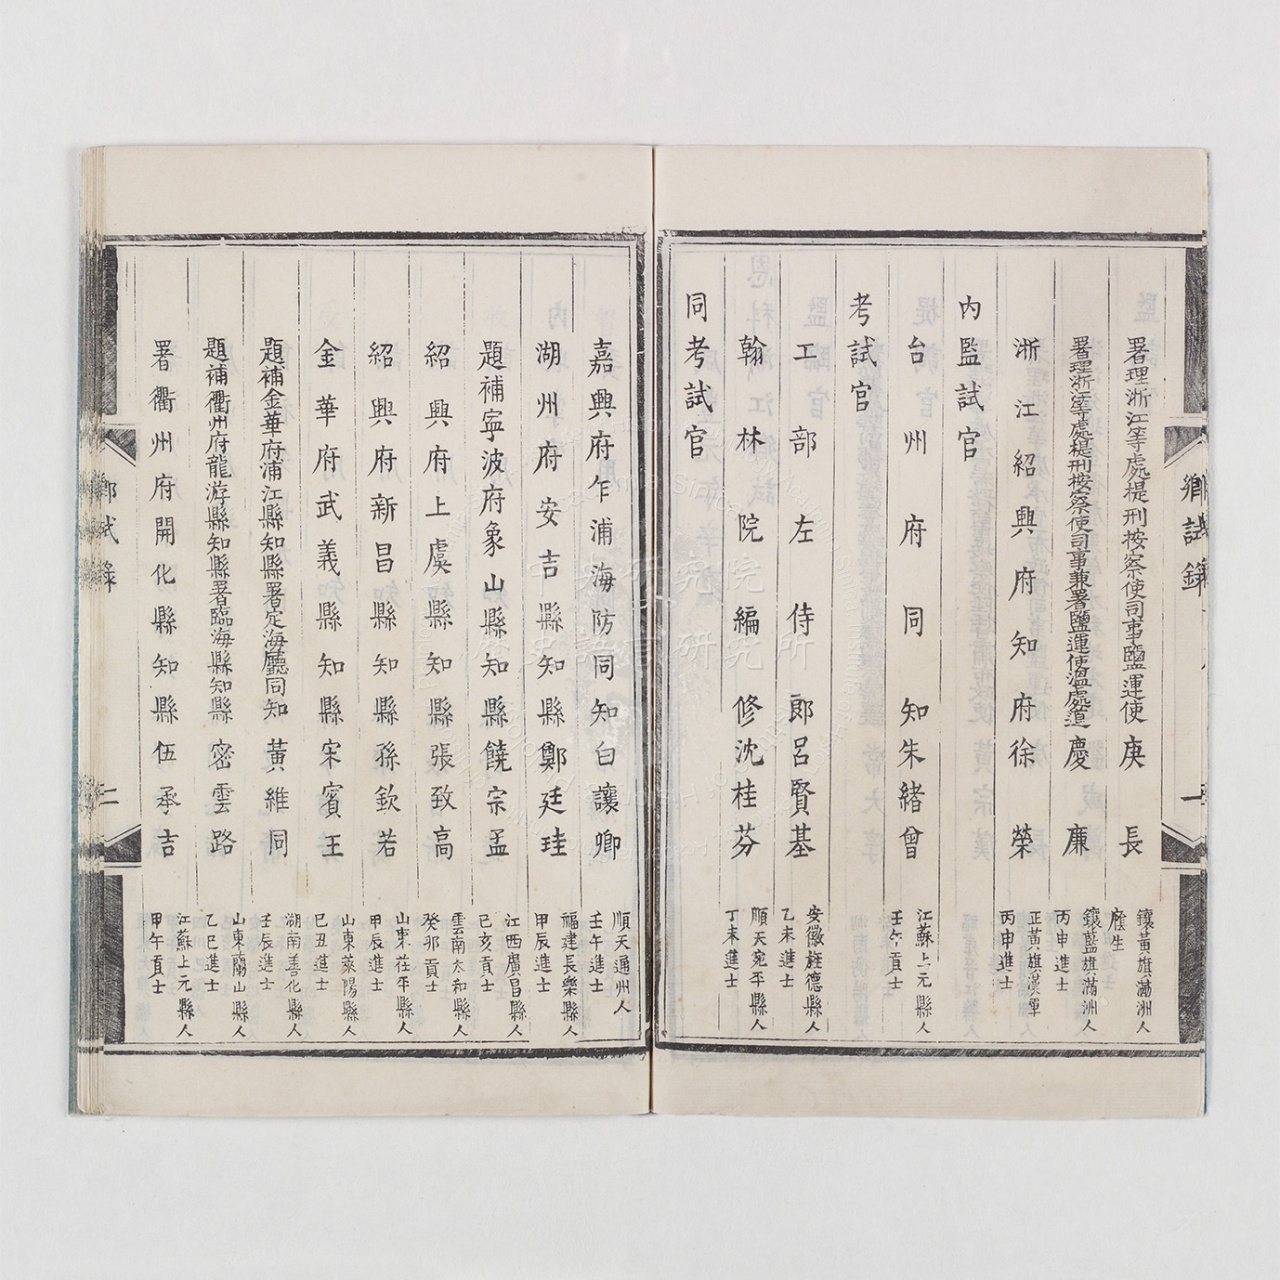 署理浙江等處提刑按察使司事鹽運使庚長
鑲黃旗滿洲人
廕生
署理浙江等處提刑按察使司事兼署鹽運使溫處道慶廉
鑲藍旗滿洲人
丙申進士
浙江紹興府知府徐榮
正黃旗漢軍
丙申進士
內監試官
台州府同知朱緒曾
江蘇上元縣人
壬午貢士
考試官
工部左侍郎呂賢基
安徽旌德縣人
乙未進士
翰林院編修沈桂芬
順天宛平縣人
丁未進士
同考試官
鄉試錄
一
嘉興府乍浦海防同知白讓卿
順天通州人
壬午進士
湖州府安吉縣知縣鄭廷珪
福建長樂縣人
甲辰進士
題補寧波府象山縣知縣饒宗孟
江西廣昌縣人
己亥貢士
紹興府上虞縣知縣張致高
雲南太和縣人
癸卯貢士
紹興府新昌縣知縣孫欽若
山東茌平縣人
甲辰進士
金華府武義縣知縣宋賓王
山東萊陽縣人
己丑進士
題補金華府浦江縣知縣署定海廳同知黃維同
湖南善化縣人
壬辰進士
題補衢州府龍游縣知縣署臨海縣知縣密雲路
山東蘭山縣人
乙巳進士
署衢州府開化縣知縣伍承吉
江蘇上元縣人
甲午貢士
鄉試錄
二
中央研究院
歷史語言研究所